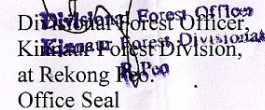 Divisional Forest Officer,
Kinnaur Forest Division,
at Rekong Peo.
Office Seal
Divisional Forest Officer
Kinnaur Forest Division
R/Peo